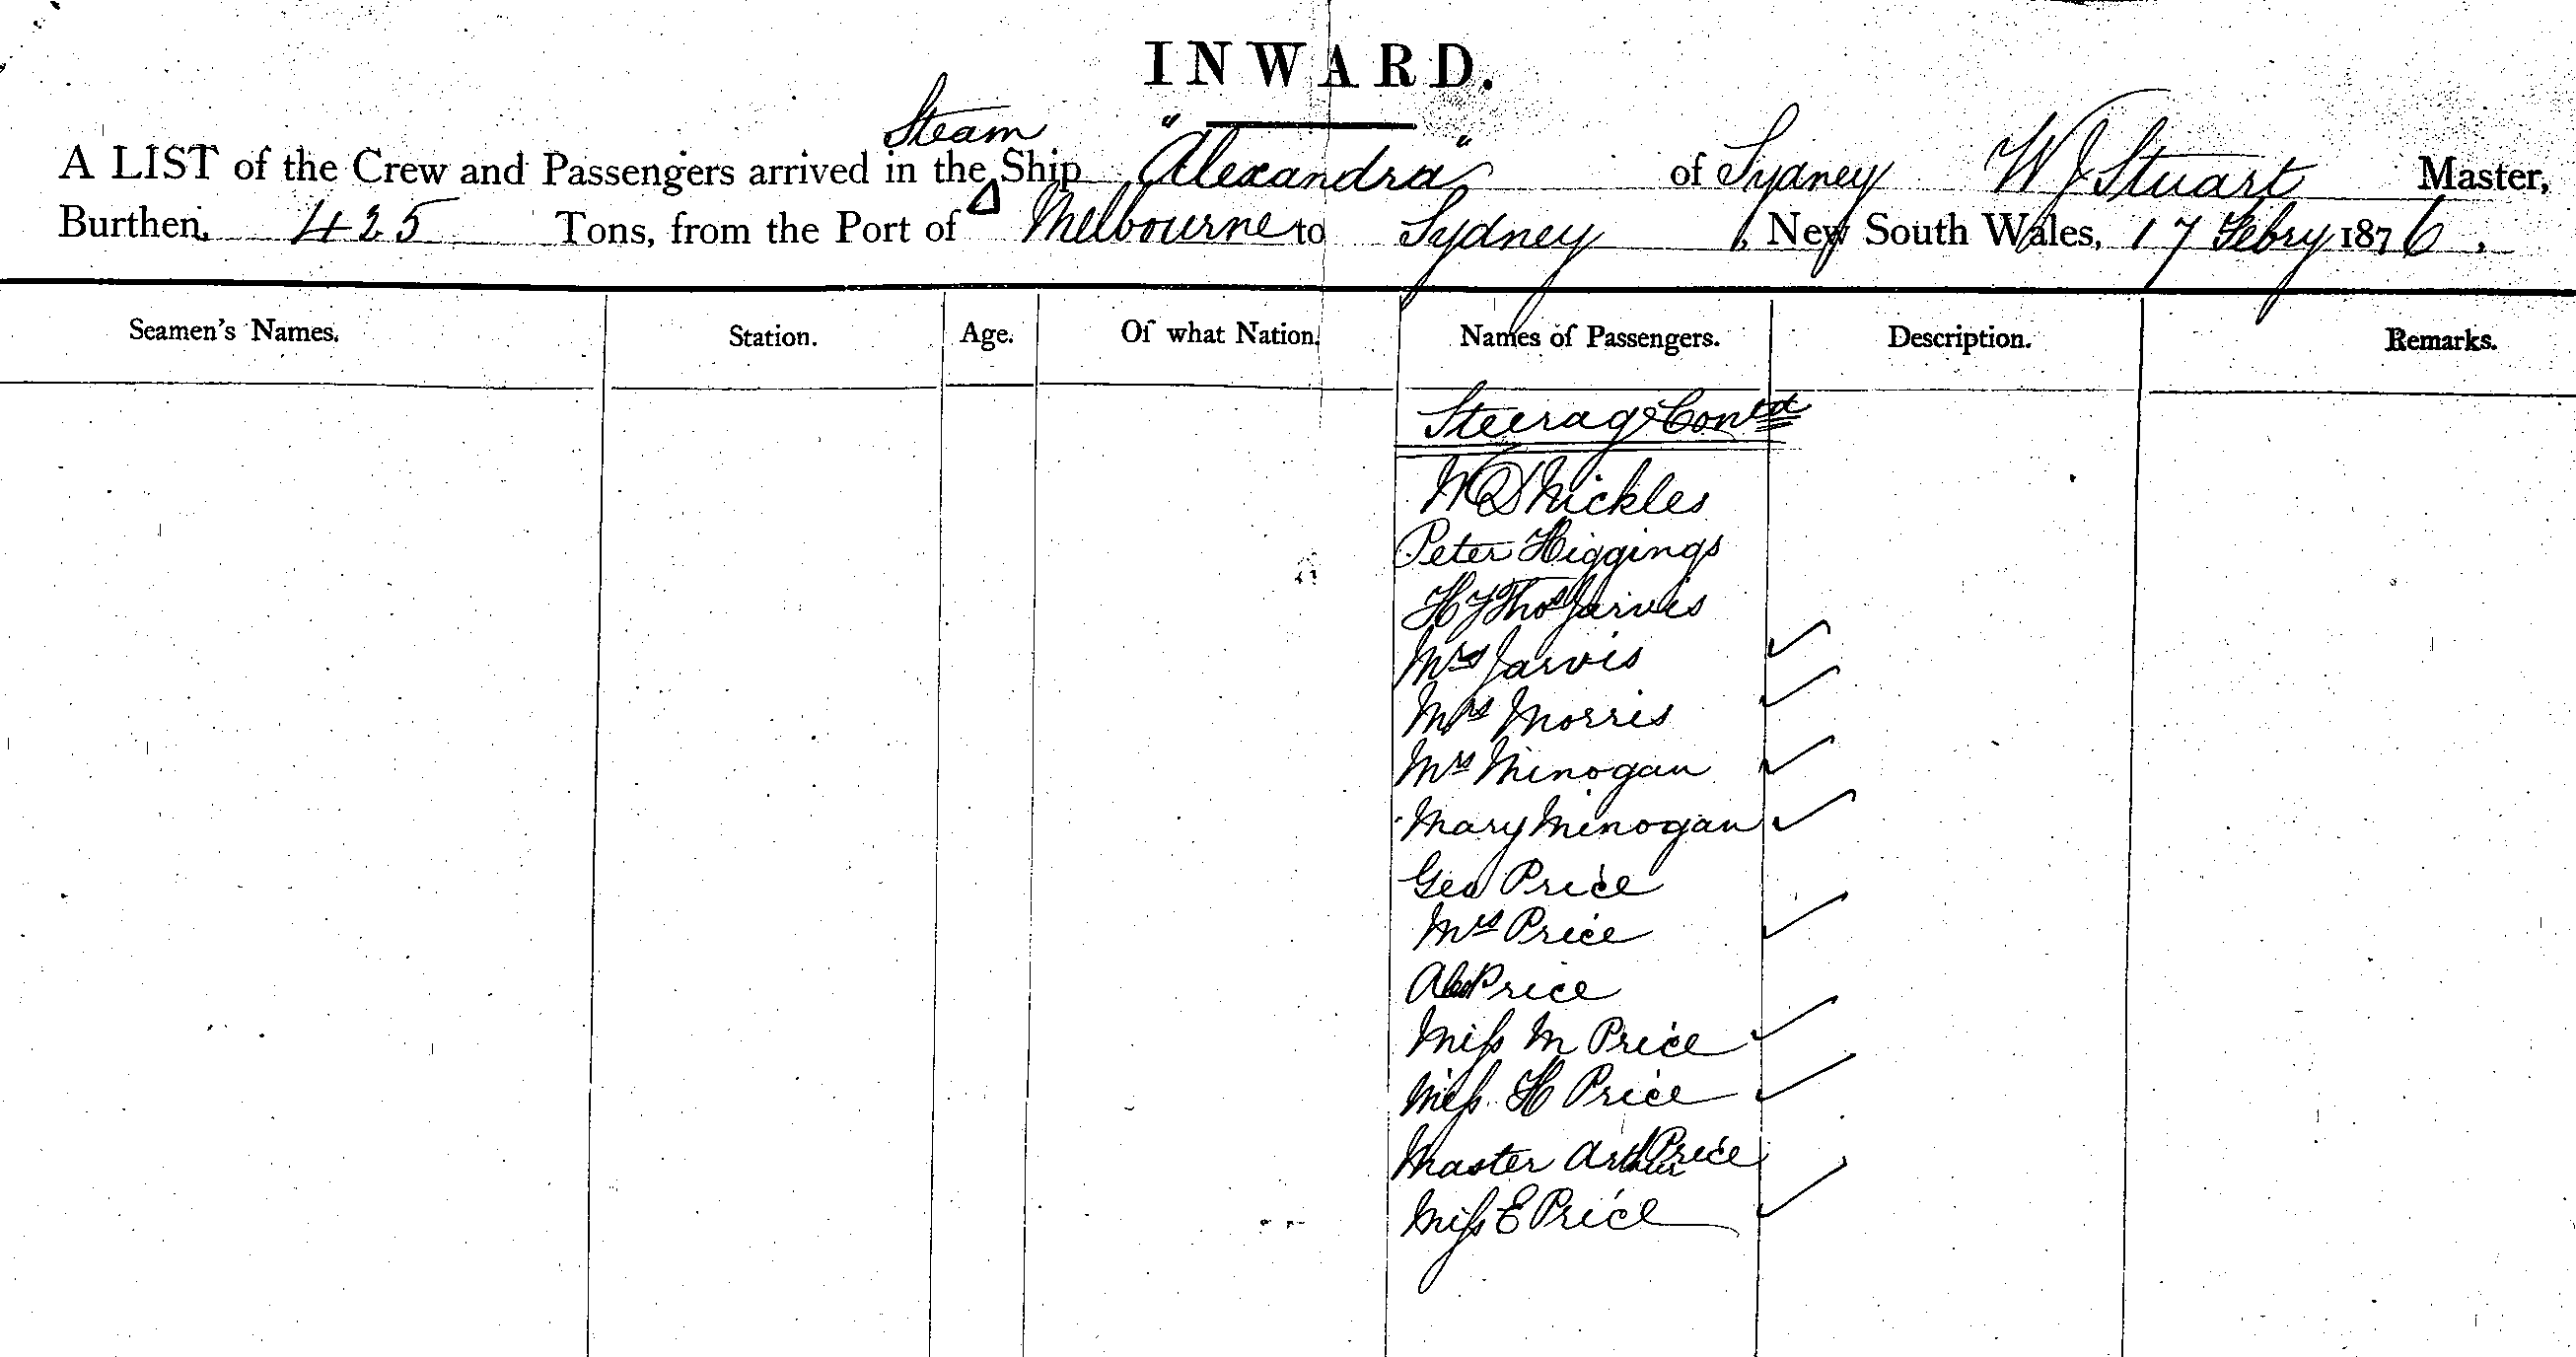 INWARD.
Steam
A LIST of the Crew and Passengers arrived in the Ship "Alexandra" of Sydney W J Stuart Master,
Burthen, 425 Tons, from the Port of Melbourne to Sydney, New South Wales, 17 Febry 1876.
Seamen's Names. Station. Age. Of what Nation. Names of Passengers. Description. Remarks.
Steerage Contd
Peter Higgings
Thos Jarvis
Mrs Jarvis
Mrs Morris
Mrs Minogan
Mary Minogan
Geo Price
Mrs Price
Price
Miss M Price
Miss H Price
Master Arthur Price
Miss E Price